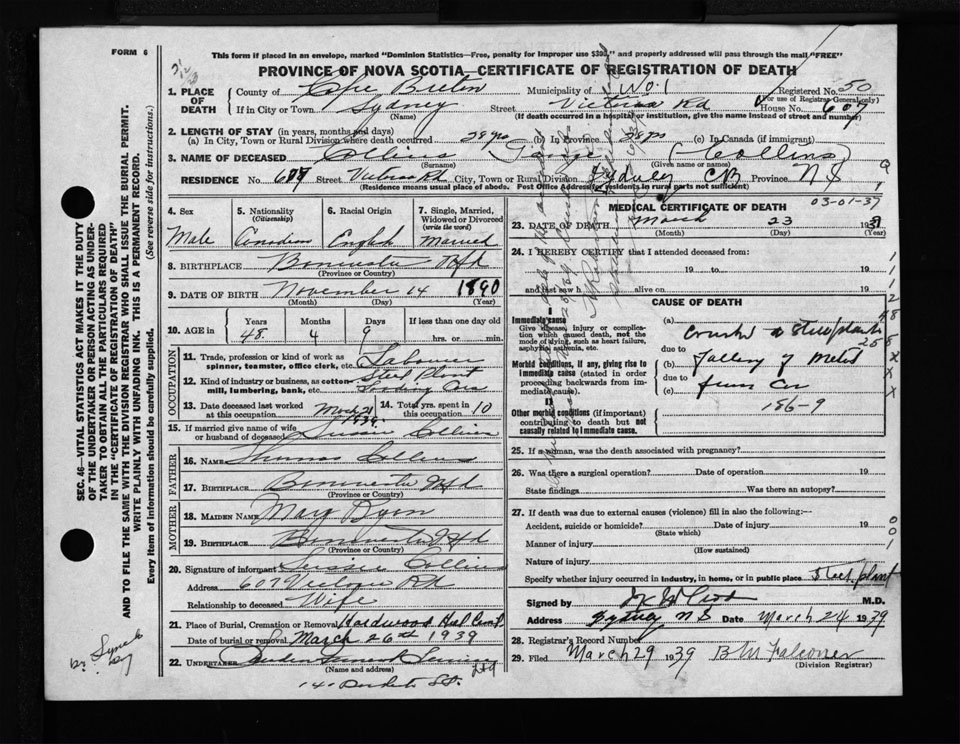 FORM 6
This form if placed in an envelope, marked "Dominion Statistics—Free, penalty for improper use $300," and properly addressed will pass through the mail "FREE"
PROVINCE OF NOVA SCOTIA—CERTIFICATE OF REGISTRATION OF DEATH
1. PLACE OF DEATH
County of Cape Breton Municipality of No. 1 Registered No. 50
(For use of Registrar-General only)
If in City or Town Sydney Street Victoria Rd House No. 607
(Name) (If death occurred in a hospital or institution, give the name instead of street and number)
2. LENGTH OF STAY (in years, months and days)
(a) In City, Town or Rural Division where death occurred 28 yrs (b) In Province 28 yrs (c) In Canada (if immigrant)
3. NAME OF DECEASED Collins (Collins)
(Surname) (Given name or names)
RESIDENCE No. 607 Street Victoria Rd City, Town or Rural Division Sydney CB Province N S
(Residence means usual place of abode. Post Office Address for residents in rural parts not sufficient)
4. Sex Male
5. Nationality (Citizenship) Canadian
6. Racial Origin English
7. Single, Married, Widowed or Divorced (write the word) Married
8. BIRTHPLACE Bonavista Nfld
(Province or Country)
9. DATE OF BIRTH November 14 1890
(Month) (Day) (Year)
10. AGE in Years 48 Months 4 Days 9 If less than one day old hrs. or min.
OCCUPATION
11. Trade, profession or kind of work as spinner, teamster, office clerk, etc. Labourer
12. Kind of industry or business, as cotton mill, lumbering, bank, etc. Steel Plant
13. Date deceased last worked at this occupation March 21 1939
14. Total yrs. spent in this occupation 10
15. If married give name of wife or husband of deceased Collins
FATHER
16. NAME Thomas Collins
17. BIRTHPLACE Bonavista Nfld
(Province or Country)
MOTHER
18. MAIDEN NAME Mary
19. BIRTHPLACE Bonavista Nfld
(Province or Country)
20. Signature of informant Collins
Address 607 Victoria Rd
Relationship to deceased Wife
21. Place of Burial, Cremation or Removal Hardwood Hill Cem
Date of burial or removal March 26th 1939
22. UNDERTAKER Ltd
(Name and address)
SEC. 46—VITAL STATISTICS ACT MAKES IT THE DUTY OF THE UNDERTAKER OR PERSON ACTING AS UNDERTAKER TO OBTAIN ALL THE PARTICULARS REQUIRED IN THE "CERTIFICATE OF REGISTRATION OF DEATH" AND TO FILE THE SAME WITH THE DIVISION REGISTRAR WHO SHALL ISSUE THE BURIAL PERMIT.
WRITE PLAINLY WITH UNFADING INK. THIS IS A PERMANENT RECORD.
Every item of information should be carefully supplied. (See reverse side for instructions.)
MEDICAL CERTIFICATE OF DEATH
03-01-37
23. DATE OF DEATH March 23 19
(Month) (Day) (Year)
24. I HEREBY CERTIFY that I attended deceased from:
19 to 19
and last saw h alive on 19
CAUSE OF DEATH
I
Immediate cause
Give disease, injury or complication which caused death, not the mode of dying, such as heart failure, asphyxia, asthenia, etc.
(a) Crushed at Steel plant
due to
Morbid conditions, if any, giving rise to immediate cause (stated in order proceeding backwards from immediate cause).
(b) falling of Metal
due to
(c) from Car
II
Other morbid conditions (if important) contributing to death but not causally related to immediate cause.
186-9
25. If a woman, was the death associated with pregnancy?
26. Was there a surgical operation? Date of operation 19
State findings Was there an autopsy?
27. If death was due to external causes (violence) fill in also the following:—
Accident, suicide or homicide? Date of injury 19
(State which)
Manner of injury
(How sustained)
Nature of injury
Specify whether injury occurred in industry, in home, or in public place Steel plant
Signed by M.D.
Address Sydney N S Date March 24 1939
28. Registrar's Record Number
29. Filed March 29 1939 B M Falconer
(Division Registrar)